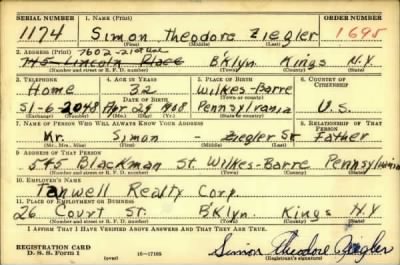 SERIAL NUMBER 1. NAME (Print) ORDER NUMBER
1174 Simon Theodore Ziegler 1695
(First) (Middle) (Last)
7602-21st Ave
2. ADDRESS (Print)
745 Lincoln Place B'Klyn. Kings N.Y.
(Number and street or R. F. D. number) (Town) (County) (State)
3. TELEPHONE 4. AGE IN YEARS 5. PLACE OF BIRTH 6. COUNTRY OF CITIZENSHIP
Home 32 Wilkes-Barre
DATE OF BIRTH (Town or county)
Sl-6-2048 Apr 29 1908 Pennsylvania U.S.
(Exchange) (Number) (Mo.) (Day) (Yr.) (State or country)
7. NAME OF PERSON WHO WILL ALWAYS KNOW YOUR ADDRESS 8. RELATIONSHIP OF THAT PERSON
Mr. Simon - Ziegler Sr. Father
(Mr., Mrs., Miss) (First) (Middle) (Last)
9. ADDRESS OF THAT PERSON
545 Blackman St. Wilkes-Barre Pennsylvania
(Number and street or R. F. D. number) (Town) (County) (State)
10. EMPLOYER'S NAME
Tanwell Realty Corp.
11. PLACE OF EMPLOYMENT OR BUSINESS
26 Court St. B'Klyn Kings N.Y.
(Number and street or R. F. D. number) (Town) (County) (State)
I AFFIRM THAT I HAVE VERIFIED ABOVE ANSWERS AND THAT THEY ARE TRUE.
REGISTRATION CARD
D. S. S. Form 1 (over) 16-17105 Simon Theodore Ziegler
(Registrant's signature)